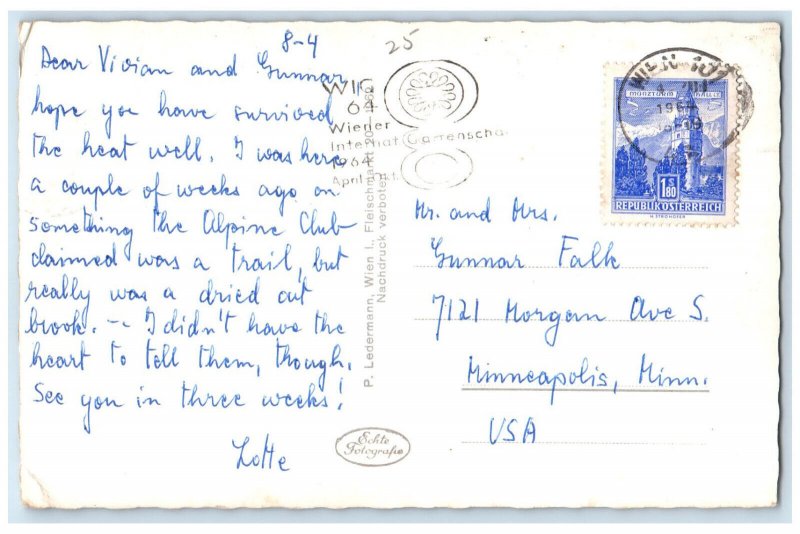 8-4
25
Dear Vivian and Gunnar,
hope you have survived
the heat well. I was here
a couple of weeks ago on
something the Alpine Club
claimed was a trail, but
really was a dried out
brook. -- I didn't have the
heart to tell them, though.
See you in three weeks!
Lotte
WIG
64
Wiener
Internat Gartenscha
1964
April
P. Ledermann, Wien I., Fleischmarkt 20
Nachdruck verboten
Echte
Fotografie
WIEN 101
196
MÜNZTURM HALL
1.80
S
REPUBLIK ÖSTERREICH
H. STROHOFER
Mr. and Mrs.
Gunnar Falk
7121 Morgan Ave S.
Minneapolis, Minn.
USA